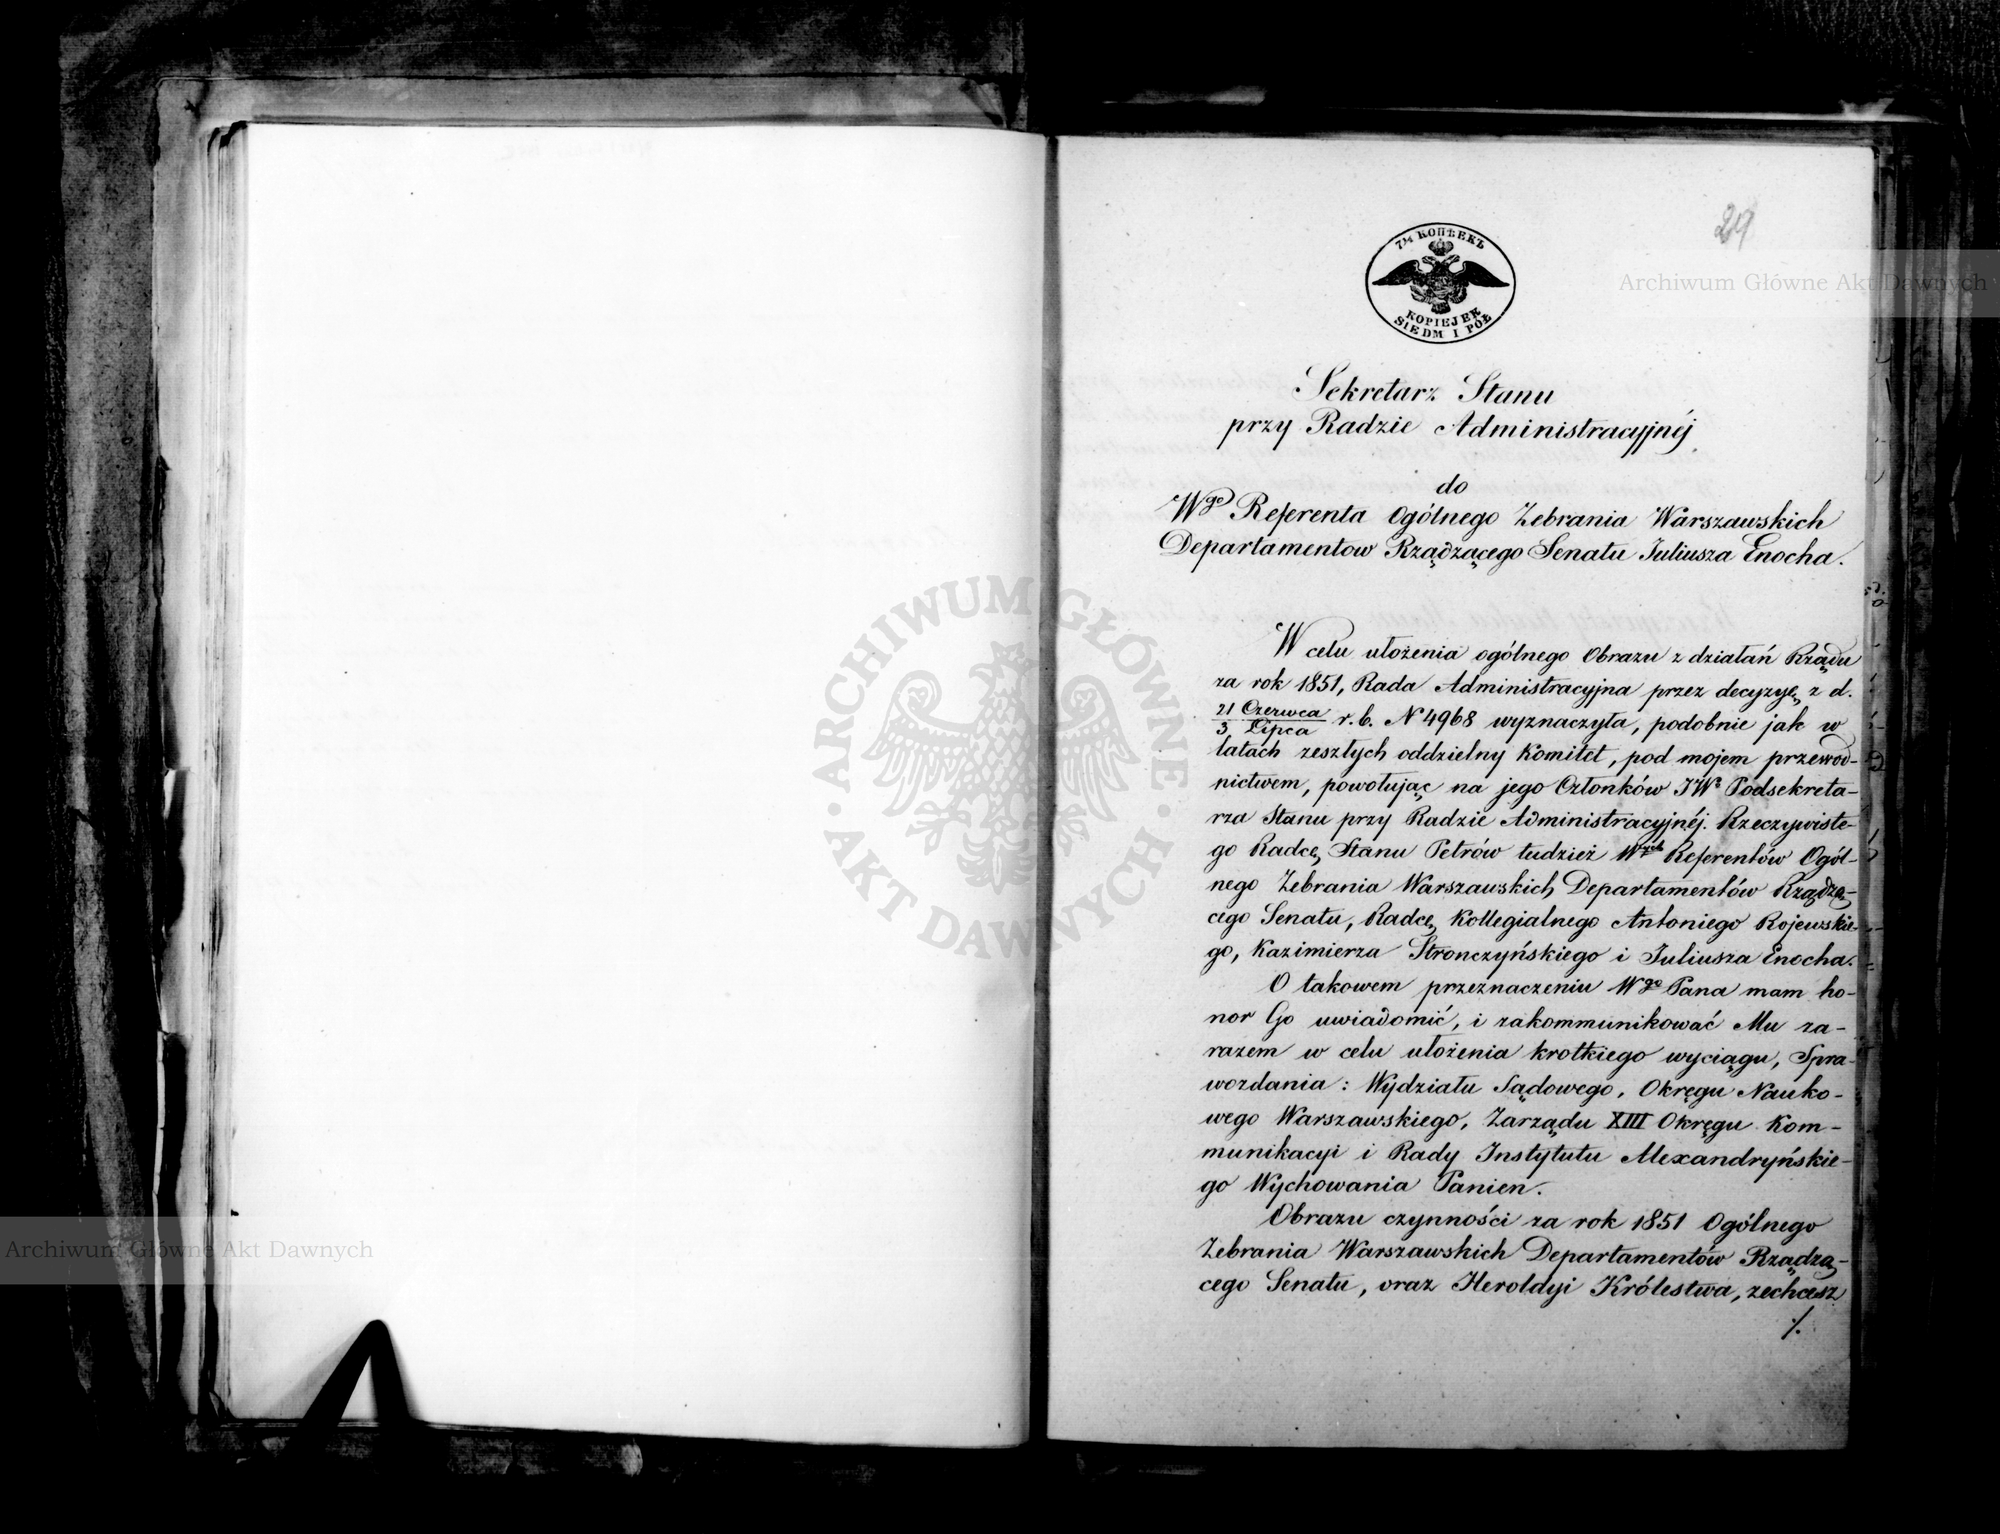 29
7½ КОПѢЕКЪ
KOPIEJEK
SIEDM I PÓŁ
Sekretarz Stanu
przy Radzie Administracyjnéj
do
Wgo Referenta Ogólnego Zebrania Warszawskich
Departamentow Rządzącego Senatu Juliusza Enocha.
W celu ułożenia ogólnego Obrazu z działań Rządu
za rok 1851, Rada Administracyjna przez decyzyę z d.
21 Czerwca / 3 Lipca r. b. N 4968 wyznaczyła, podobnie jak w
latach zeszłych oddzielny Komitet, pod mojem przewod-
nictwem, powołując na jego Członków JWo Podsekreta-
rza Stanu przy Radzie Administracyjnéj. Rzeczywiste-
go Radcę Stanu Petrów tudzież Wych Referentów Ogól-
nego Zebrania Warszawskich Departamentów Rządzą-
cego Senatu, Radcę Kollegialnego Antoniego Rojewskie-
go, Kazimierza Stronczyńskiego i Juliusza Enocha.
O takowem przeznaczeniu Wgo Pana mam ho-
nor Go uwiadomić, i zakommunikować Mu za-
razem w celu ułożenia krotkiego wyciągu, Spra-
wozdania: Wydziału Sądowego, Okręgu Nauko-
wego Warszawskiego, Zarządu XIII Okręgu Kom-
munikacyi i Rady Instytutu Alexandryńskie-
go Wychowania Panien.
Obrazu czynności za rok 1851 Ogólnego
Zebrania Warszawskich Departamentów Rządzą-
cego Senatu, oraz Heroldyi Królestwa, zechcesz
./.
Archiwum Główne Akt Dawnych
ARCHIWUM GŁÓWNE · AKT DAWNYCH ·
Archiwum Główne Akt Dawnych